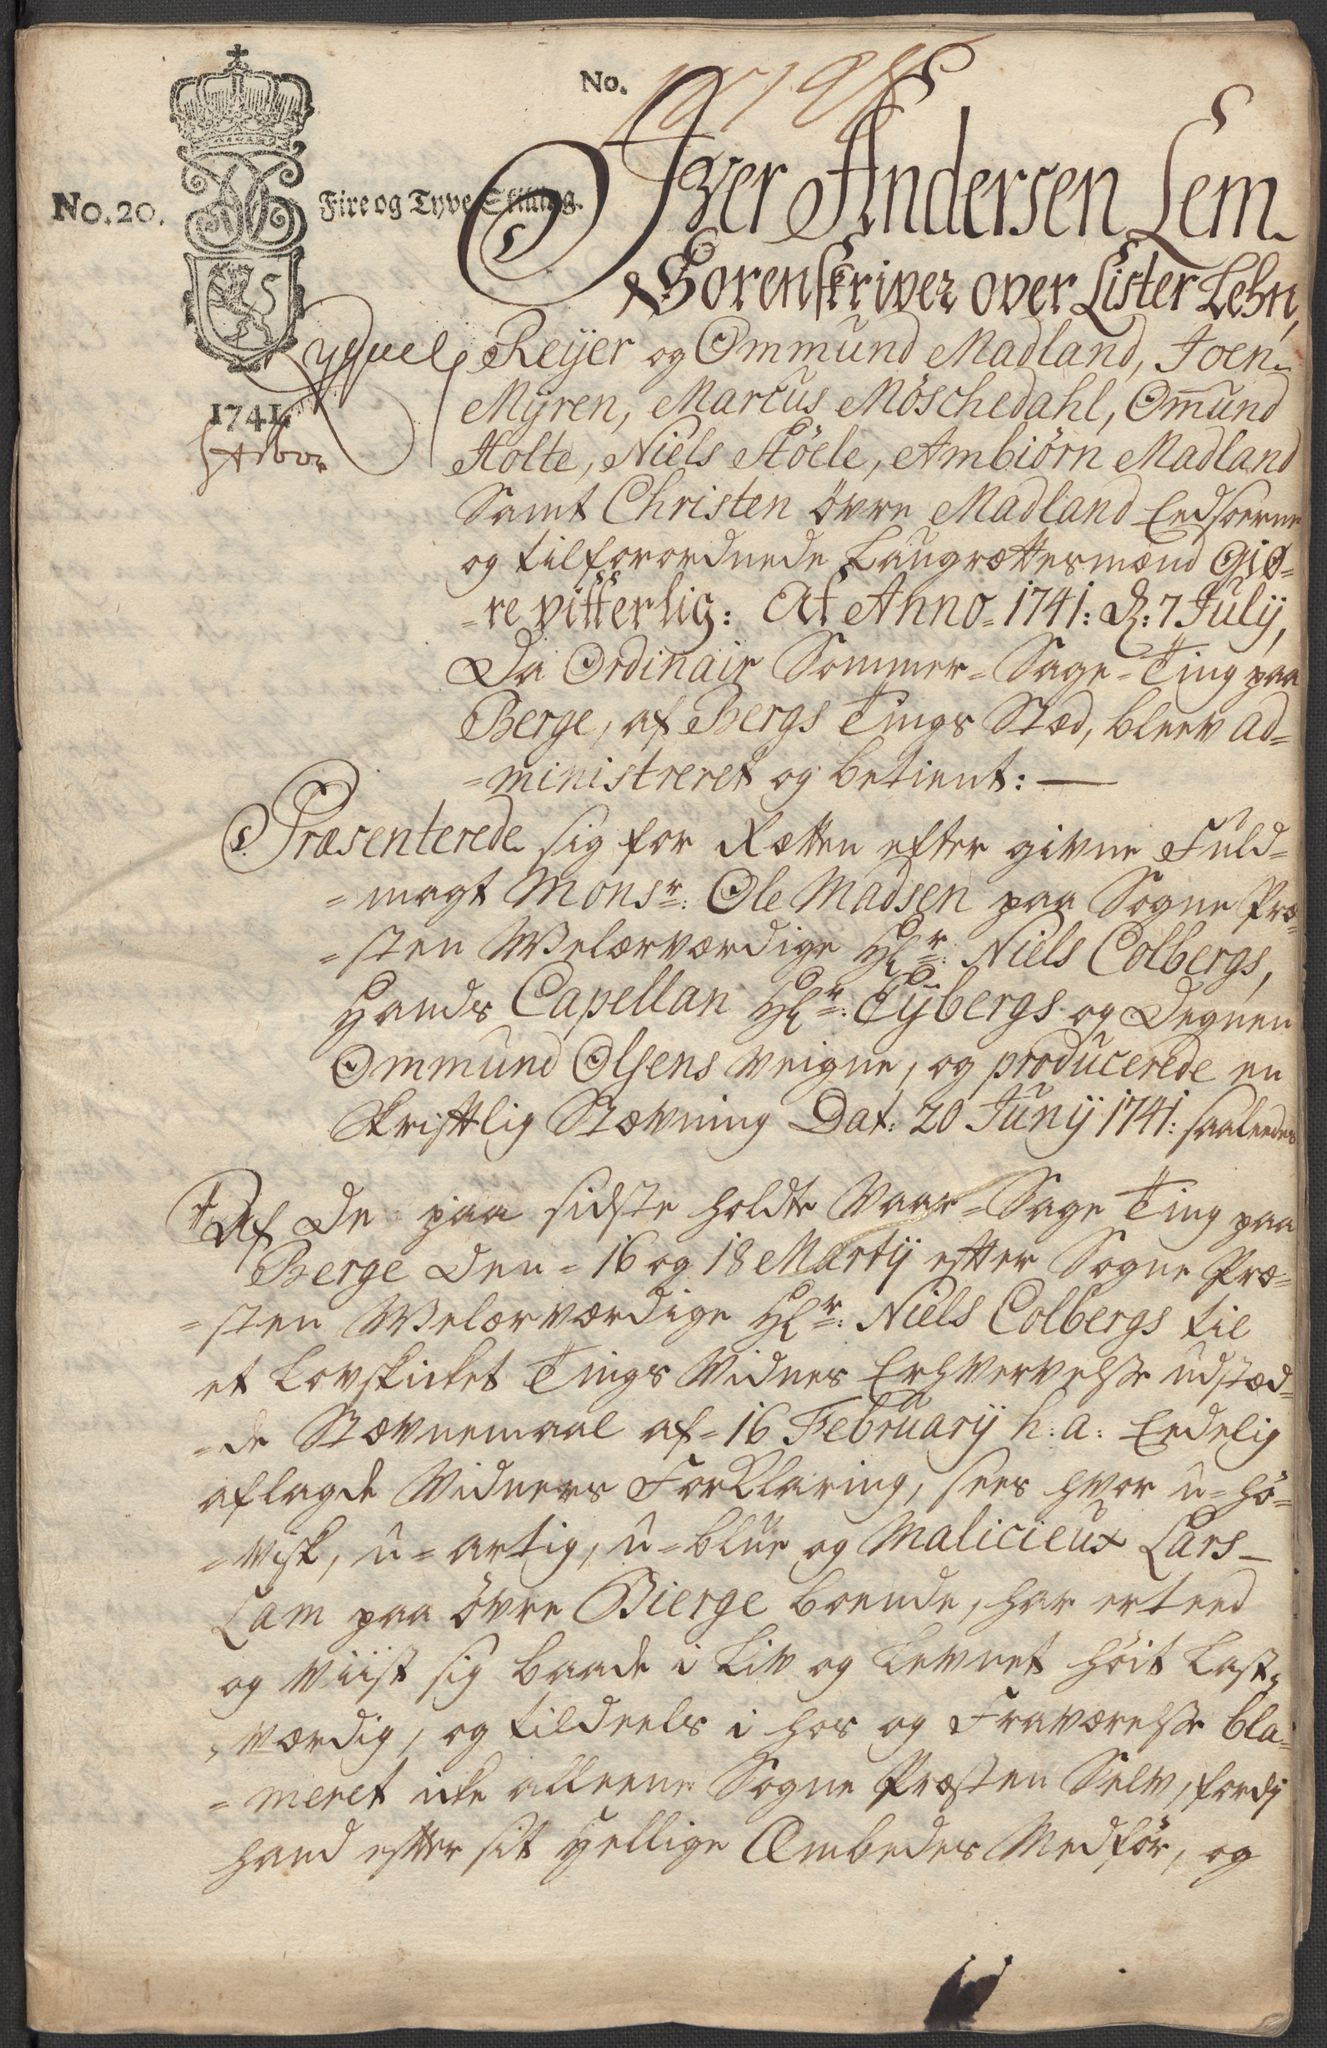 No.
No. 20. Fire og Tyve Skilling.
1741.
Iver Andersen Lem
Sorenskriver over Lister Lehn,
Reijer og Ommund Madland, Joen
Mÿren, Marcus Möschedahl, Om̅und
Holte, Niels Stöele, Ambiörn Madland
Samt Christen övre Madland Eedsoerne
og tilforordnede Laugrættesmænd Giø-
-re vitterlig: At Anno 1741: d: 7 Julÿ,
Da Ordinair Sommer-Sage-Ting paa
Berge, af Bergs Tings Stæd, bleev ad-
-ministreret og betient: —
Præsenterede sig for Rætten efter givne Fuld-
-magt Monsr: Ole Madsen paa Sogne Præ-
-sten Welærværdige Hr: Niels Colbergs,
Hands Capellan Hr: Eÿbergs og Degnen
Ommund Olsens veigne, og producerede en
Skriftlig Stævning Dat: 20 Junÿ 1741: saaleedes
Af De paa sidste holdte Vaar-Sage Ting paa
Berge den 16 og 18 Martÿ efter Sogne Præ-
-sten Welærværdige Hr: Niels Colbergs til
et Lovskicket Tings Vidnes Erhvervelsse udstæd-
-de Stævnemaal af 16 Februarÿ h: a: Eedelig
aflagde Vidners Forklaring, sees hvor u-hö-
-visk, u-artig, u-blue og Malicieux Lars
Lam paa öfre Bierge boende, har erteed
og viist sig baade i Liv og Levnet höit Last-
værdig, og tildeels i hos og Fraværelsse bla-
-meret icke alleene Sogne Præsten Selv, fordj
hand efter sit hellige Embedes Medför, og